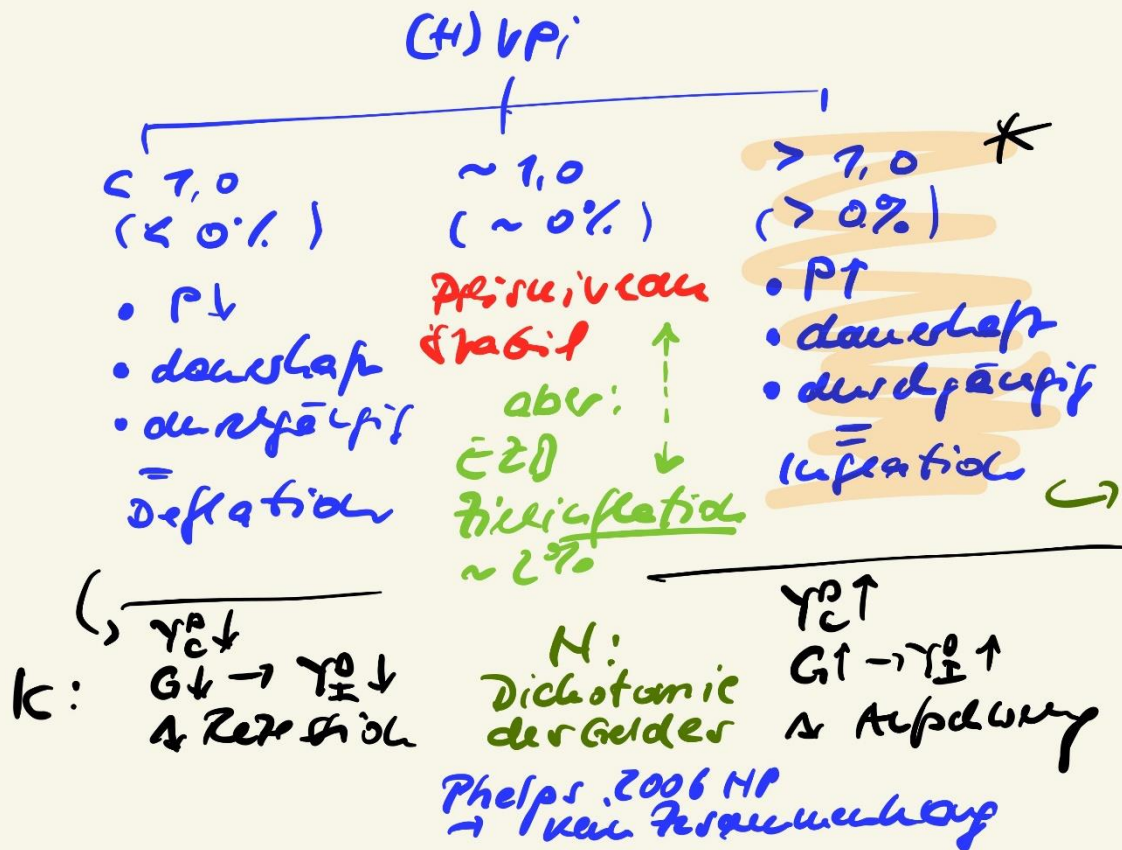 (H)VPi
< 1,0
(< 0%)
• P↓
• dauerhaft
• durchgängig
=
Deflation
~ 1,0
(~ 0%)
Preisniveau
stabil
aber:
EZB
Zielinflation
~ 2%
> 1,0 *
(> 0%)
• P↑
• dauerhaft
• durchgängig
=
Inflation
K:
Y_C^D ↓
G↓ → Y_I^D ↓
Rezession
N:
Dichotomie
des Geldes
Y_C^D ↑
G↑ → Y_I^D ↑
Aufschwung
Phelps 2006 NP
→ kein Zusammenhang